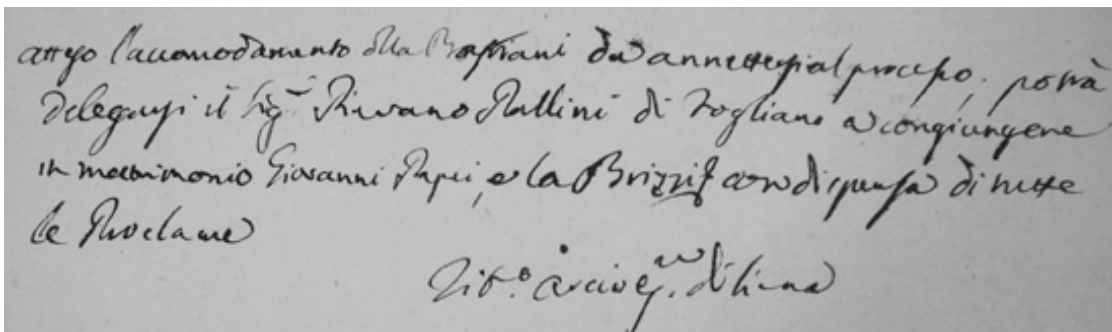 atteso l'accomodamento della Bastiani da annettersi al processo, potrà
delegarsi il Sig.r Pievano Pallini di Fogliano a congiungere
in matrimonio Giovanni Papei, e la Brizzi con dispensa di tutte
le Proclame
Arcives.